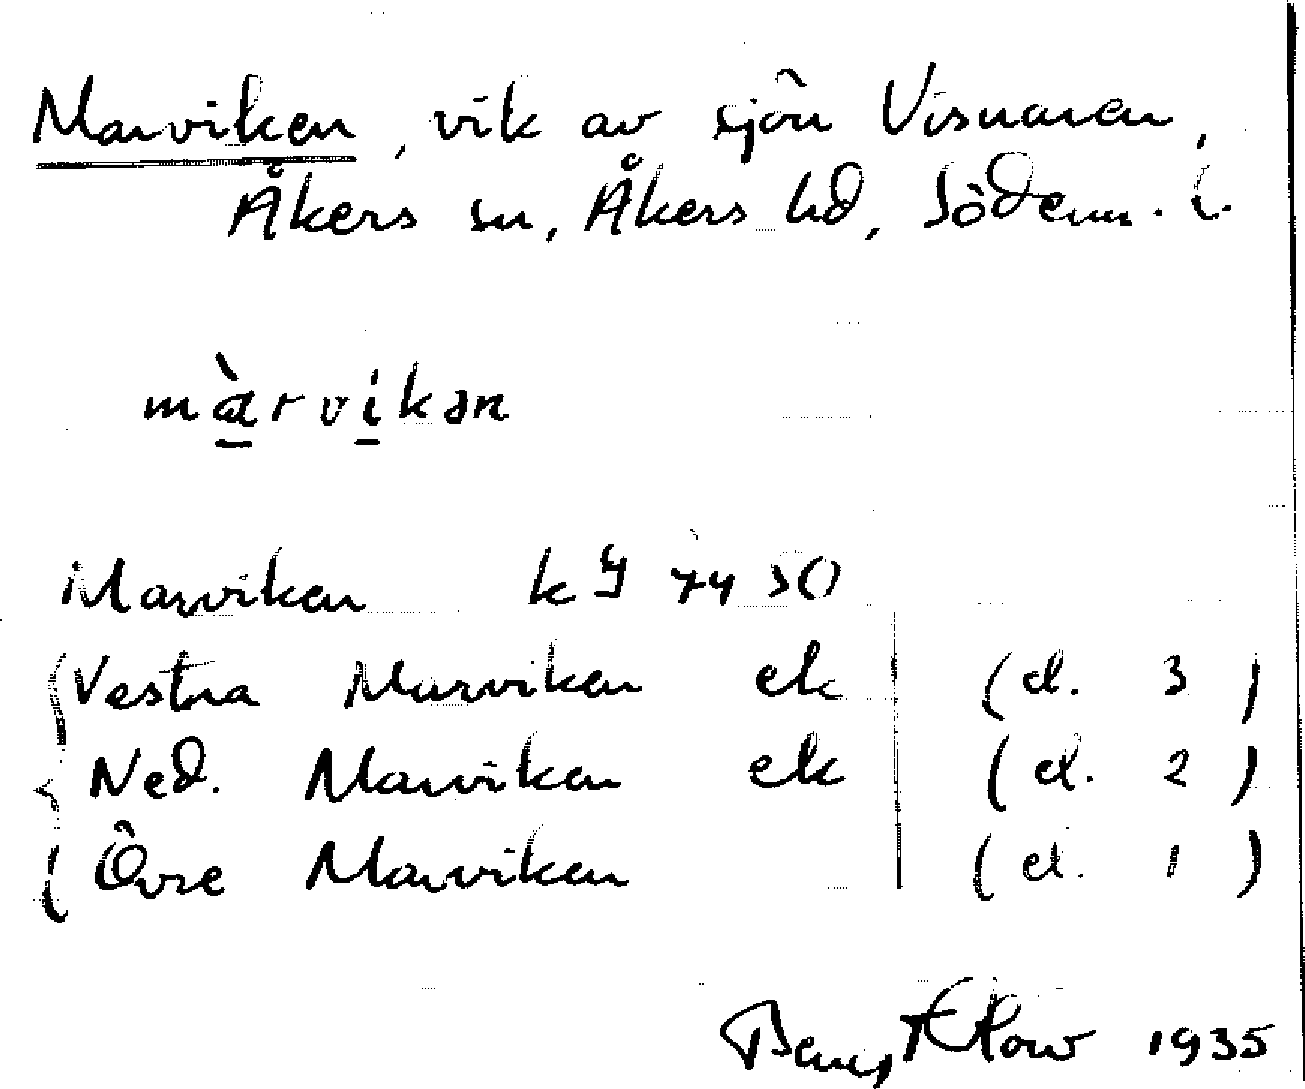 Marviken, vik av sjön Visnaren,
Åkers sn, Åkers hd, Söderm. l.
màrvikən
Marviken k 9 74 50
Vestra Marviken ek (el. 3)
Ned. Marviken ek (el. 2)
Övre Marviken (el. 1)
1935